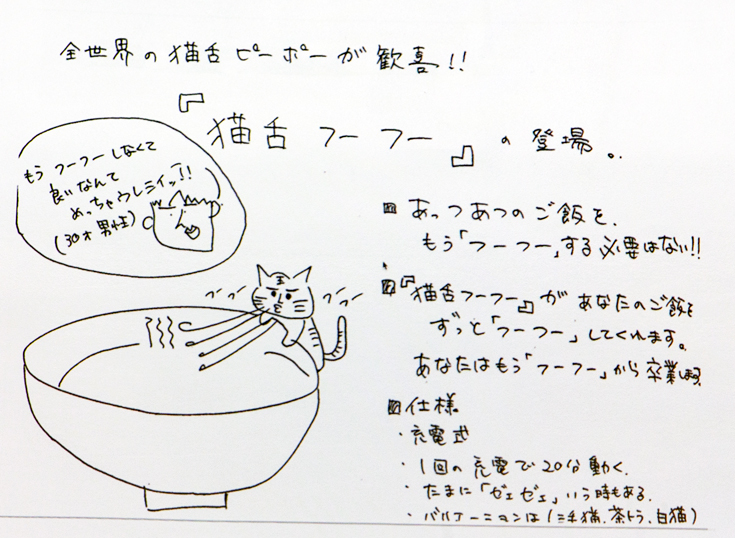 全世界の猫舌ピーポーが歓喜!!
『猫舌フーフー』の登場。
もうフーフーしなくて
良いなんて
めっちゃウレシイッ!!
(30才男性)
あっつあつのご飯を、
もう「フーフー」する必要はない!!
『猫舌フーフー』があなたのご飯を
ずっと「フーフー」してくれます。
あなたはもう「フーフー」から卒業します
フーフー
フーフー
仕様
・充電式
・1回の充電で20分動く。
・たまに「ゼェゼェ」いう時もある。
・バリエーションは(三毛猫、茶トラ、白猫)